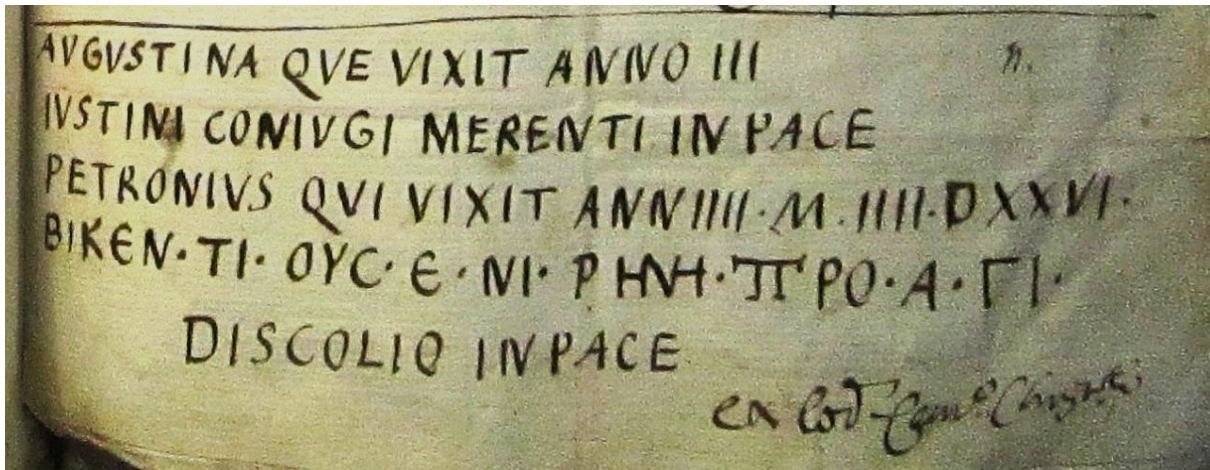 AVGVSTINA QVE VIXIT ANNO III n.
IVSTINI CONIVGI MERENTI IN PACE
PETRONIVS QVI VIXIT ANNIIII·M·IIII·DXXVI·
ΒΙΚЄΝ·ΤΙ·ΟΥС·Є·ΝΙ·ΡΗΝΗ·ΠΡΟ·Α·ΓΙ·
DISCOLIO INPACE
ex Cod